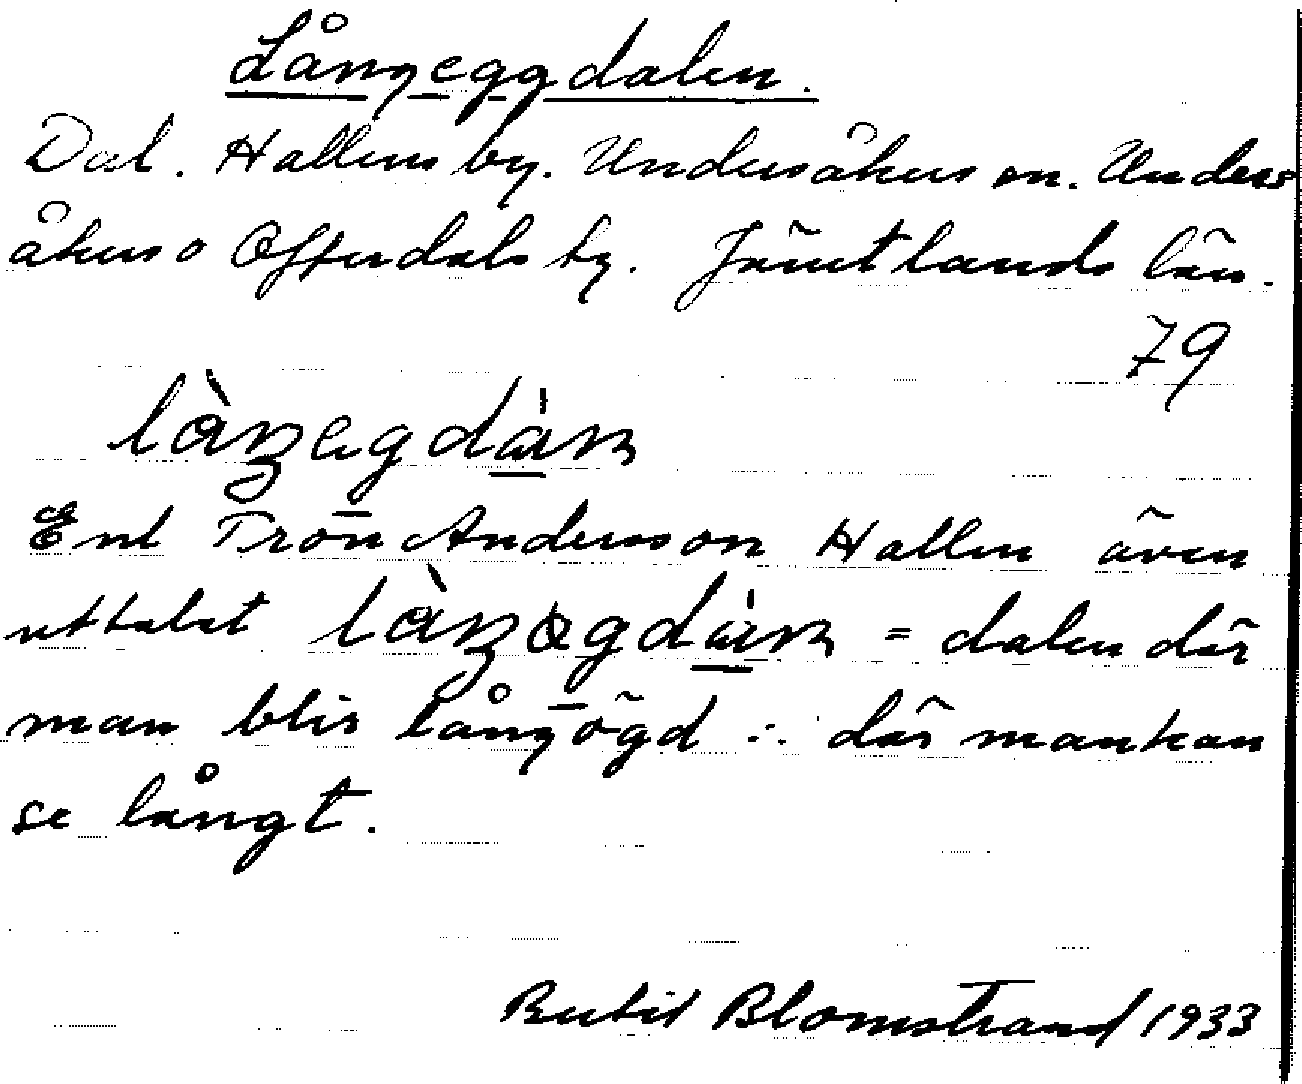 Långeggdalen.
Dal. Hallens by. Undersåkers sn. Unders
åkers o Offerdals tg. Jämtlands län.
79
Enl Trön Andersson Hallen även
uttalat = dalen där
man blir långögd ∴ där man kan
se långt.
Blomstrand 1933